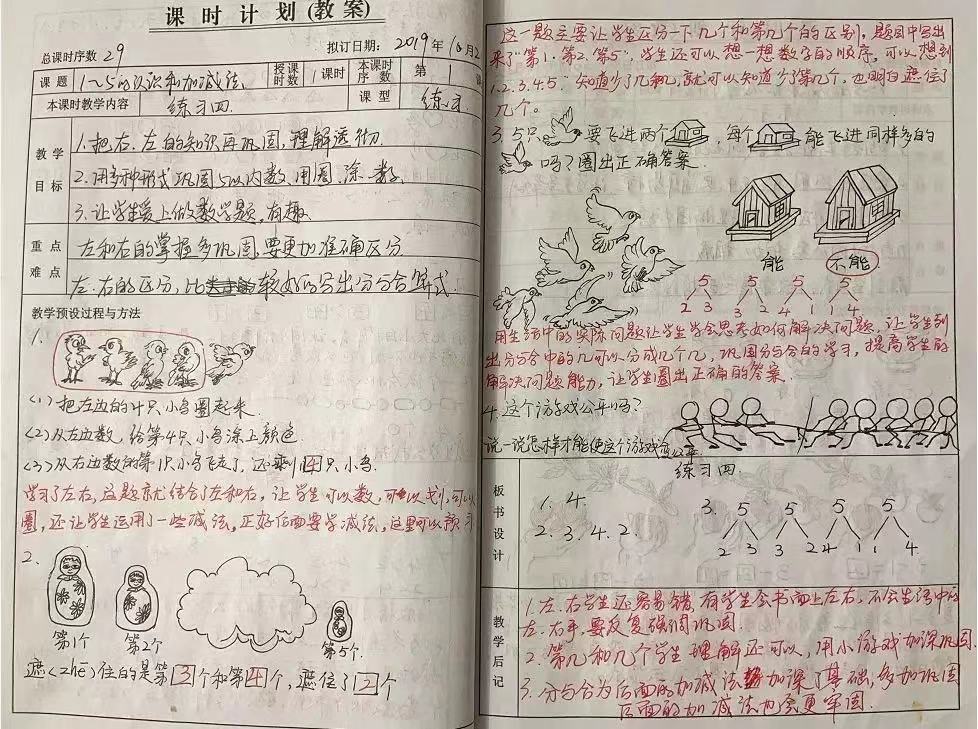 课时计划(教案)
总课时序数 29 拟订日期: 2019年10月2
课题 1~5的认识和加减法 授课时数 1课时 本课时序数 第1
本课时教学内容 练习四 课型 练习
教学目标
1.把右、左的知识再巩固,理解透彻.
2.用多种形式巩固5以内数,用圈、涂、数.
3.让学生爱上做数学题,有趣.
重点 左和右的掌握多巩固,要更加准确区分
难点 左、右的区分,比较好的写出分与合算式.
教学预设过程与方法
1.
<1>把左边的4只小鸟圈起来.
<2>从左边数,给第4只小鸟涂上颜色.
<3>从右边数的第1只小鸟飞走了,还剩4只小鸟.
学习了左右,这题就结合了左和右,让学生可以数,可以划,可以
圈,还让学生运用了一些减法,正好后面要学减法,这里可以预习
2.
第1个 第2个 第5个
遮<zhē>住的是第3个和第4个,遮住了2个
这一题主要让学生区分一下几个和第几个的区别,题目中写出
来了"第1、第2、第5",学生还可以想一想数字的顺序,可以想到
1.2.3.4.5.知道少了几和几,就可以知道少了第几个,也明白遮住了
几个.
3.5只 要飞进两个 ,每个 能飞进同样多的
吗?圈出正确答案.
能 不能
5 5 5 5
2 3 3 2 4 1 1 4
用生活中的实际问题让学生学会思考如何解决问题,让学生列
出分与合中的几可以分成几个几,巩固分与合的学习,提高学生的
解决问题能力,让学生圈出正确的答案.
4.这个游戏公平吗?
说一说怎样才能使这个游戏公平
板书设计
练习四
1. 4. 3. 5 5 5 5
2. 3. 4. 2. 2 3 3 2 4 1 1 4
教学后记
1.左、右学生还容易错,有学生会书面上左右,不会生活中的
左、右手,要反复强调巩固.
2.第几和几个学生理解还可以,用小游戏加深巩固.
3.分与合为后面的加减法加深了基础,多加巩固
后面的加减法力会更牢固.